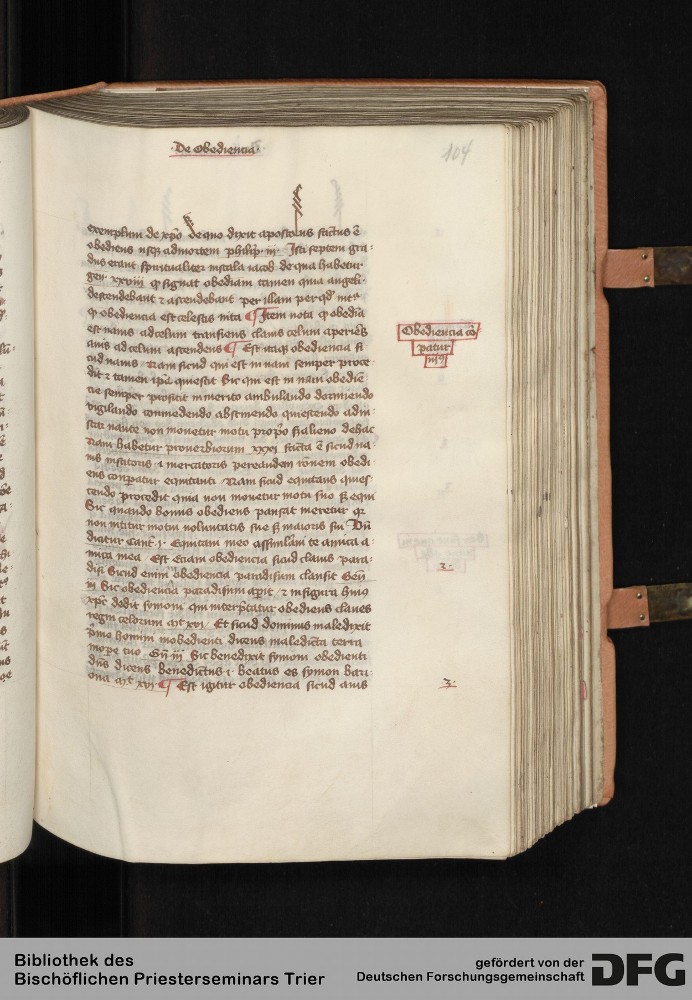 ·De Obediencia·
104
exemplum de xpo de quo dixit apostolus factus ē
obediens usqꝫ ad mortem philip· iii· Isti septem gra-
dus erant spiritualiter in scala iacob de qua habetur
gen· xxviii ꝙ signat obediam tamen quia angeli
descendebant ⁊ ascendebant per illam per qd'
ꝙ obediencia est celestis vita ¶ Item nota ꝙ obedia
est navis ad celum transiens clavis celum aperiēs
avis ad celum ascendens ¶ Est itaqꝫ obediencia si
cud navis· Nam sicud qui est in navi semper proce-
dit ⁊ tamen ipe quiescit Sic qui est in navi obediē
cie semper proficit in merito ambulando dormiendo
vigilando comedendo abstinendo quiescendo
nave non monetur motu propo sꝫ alieno de hac
Nam habetur proverbiorum xxxi· facta ē sicud na-
vis institoris i mercatoris per eandem rōnem obedi
ens conparatur equitanti Nam sicud equitans quies
cendo procedit quia non movetur motu suo sꝫ equi
Sic quando bonus obediens pausat meretur qꝛ
non initur motu voluntatis sue sꝫ maioris sui Vn̄
dicitur Cant· i· Equitatui meo assimilavi te amica
mica mea Est Eciam obediencia sicud clavis para-
disi Sicud enim obediencia paradisum clausit Geñ
iii Sic obediencia paradisum apit ⁊ in figura huius
xpc dedit symoni qui interptatur obediens claves
regni celorum mt xvi· Et sicud dominus maledixit
pmo homini inobedienti dicens maledicta terra
in ope tuo Geñ iii Sic benedixit symoni obedienti
dns dicens benedictus· i· beatus es symon bari-
ona mt xvi· ¶ Est igitur obediencia sicud avis
Obediencia cō
patur
iijꝰ
2·
3·
Bibliothek des
Bischöflichen Priesterseminars Trier
gefördert von der
Deutschen Forschungsgemeinschaft
DFG